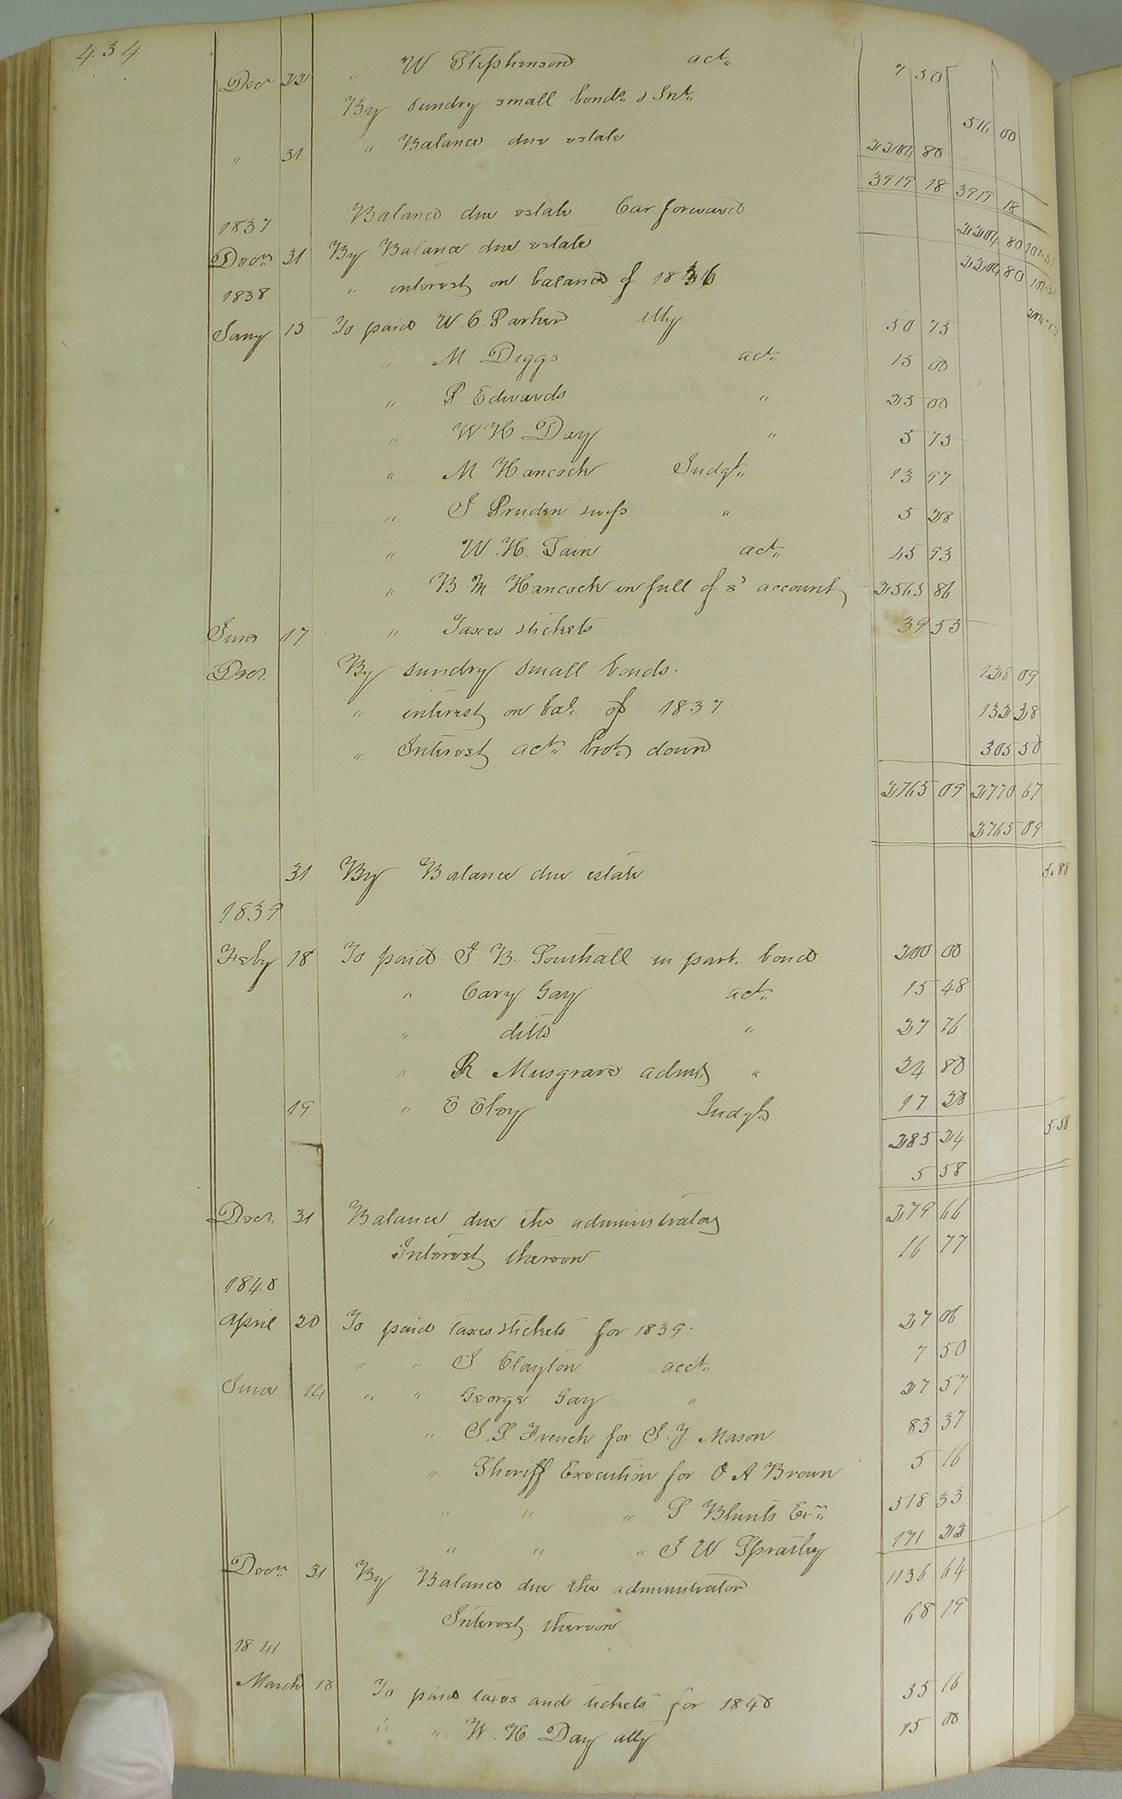 434
Decr 22 " W Stephenson act. 7 50
By sundry small bonds & Int. 516 00
" 31 " Balance due estate 2204 80
3919 18 3919 18
1837 Balance due estate Car forward 2204 80
Decr 31 By Balance due estate 2204 80
1838 " interest on balance of 1836
Jany 15 To paid W. C. Parker atty 50 75
" M Diggs act. 15 00
" P Edwards " 25 00
" W H Day " 5 75
" M Hancock Judgt. 13 97
" J Pruden " 5 28
" W. H. Gain act. 45 93
" B M. Hancock in full of s account 2565 86
June 17 " Taxes & tickets 39 53
Decr. By sundry small bonds. 128 09
" interest on bal. of 1837 132 28
" Interest act. brot down 305 50
2765 09 2770 67
2765 09
31 By Balance due estate
1839
Feby 18 To paid J. B. Southall in part. bond 200 00
" Cary Gay act. 15 48
" ditto " 27 76
" R. Musgrave admr. " 24 80
19 " E Eley Judgt. 17 20
285 24 5.58
5 58
Decr. 31 Balance due the administrator 279 66
Interest thereon 16 77
1840
April 20 To paid taxes & tickets for 1839. 27 06
" " J Clayton acct. 7 50
June 14 " " George Gay " 27 57
" J. S. French for J. Y. Mason 83 37
" Sheriff Execution for O A Brown 5 16
" " " S Blunts Exr. 518 33
" " " J W Spratley 171 22
Decr. 31 By Balance due the administrator 1136 64
Interest thereon 68 19
1841
March 18 To paid taxes and tickets for 1840 35 16
" " W. H Day atty 15 00